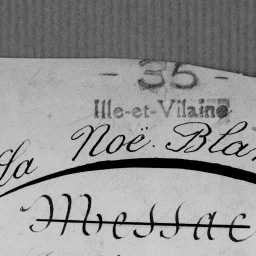 - 35 -
Ille-et-Vilaine
la Noë. Bla
Messac